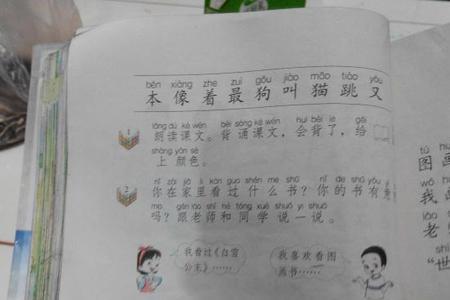 běn xiàng zhe zuì gǒu jiào māo tiào yòu
本 像 着 最 狗 叫 猫 跳 又
1
lǎng dú kè wén bèi sòng kè wén huì bèi le gěi
朗读课文。背诵课文，会背了，给
shàng yán sè
上颜色。
2
nǐ zài jiā lǐ kàn guo shén me shū nǐ de shū yǒu
你在家里看过什么书？你的书有
ma gēn lǎo shī hé tóng xué shuō yi shuō
吗？跟老师和同学说一说。
我看过《白雪
公主》……
我喜欢看图
画书……
tú
图画
wǒ
我
lǎo
老
shì
“世